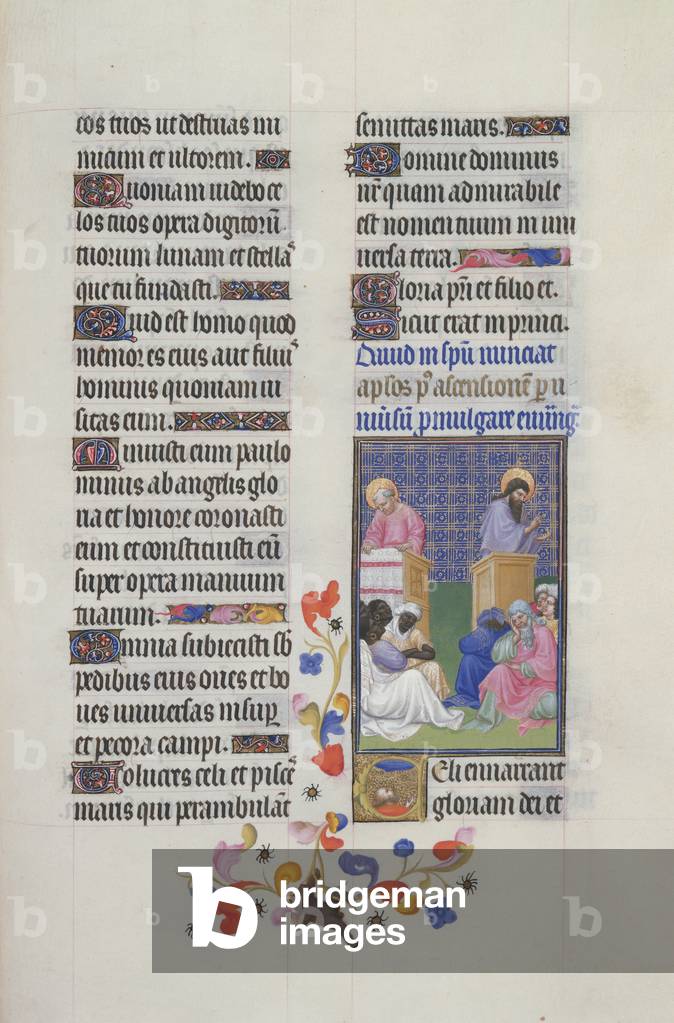 eos tuos ut destruas ini
micum et ultorem.
Quoniam uidebo ce
los tuos opera digitorū
tuorum lunam et stellaˢ
que tu fundasti.
Quid est homo quod
memor es eius aut filiuˢ
hominis quoniam ui
sitas eum.
Minuisti eum paulo
minus ab angelis glo
ria et honore coronasti
eum et constituisti eū
super opera manuum
tuarum.
Omnia subiecisti sb̄
pedibus eius oues et bo
ues uniuersas insup̄
et pecora campi.
Uolucres celi et pisceˢ
maris qui perambulāt
semittas maris.
Domine dominus
nr̄ quam admirabile
est nomen tuum in uni
uersa terra.
Gloria pr̄i et filio et.
Sicut erat in princi.
Dauid in sp̄u nunciat
ap̄los pᵒ ascensionē p̄ u
p̄mulgare
Celi ennarrant
gloriam dei et
b
bridgeman
images